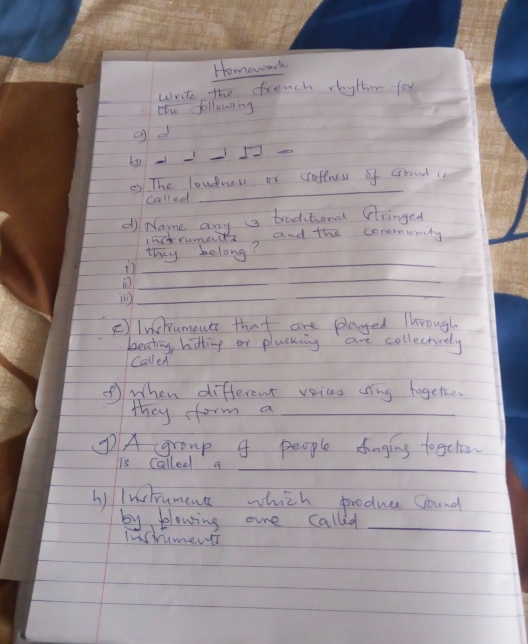 Homework
Write the french rhythm for
the following
a)
b)
c) The loudness or softness of sound is
called
d) Name any 3 traditional stringed
instruments and the community
they belong?
i)
ii)
iii)
e) Instruments that are played through
beating, hitting or plucking are collectively
called
f) when different voices sing together
they form a
g) A group of people singing together
is called a
h) Instruments which produce sound
by blowing are called
instruments